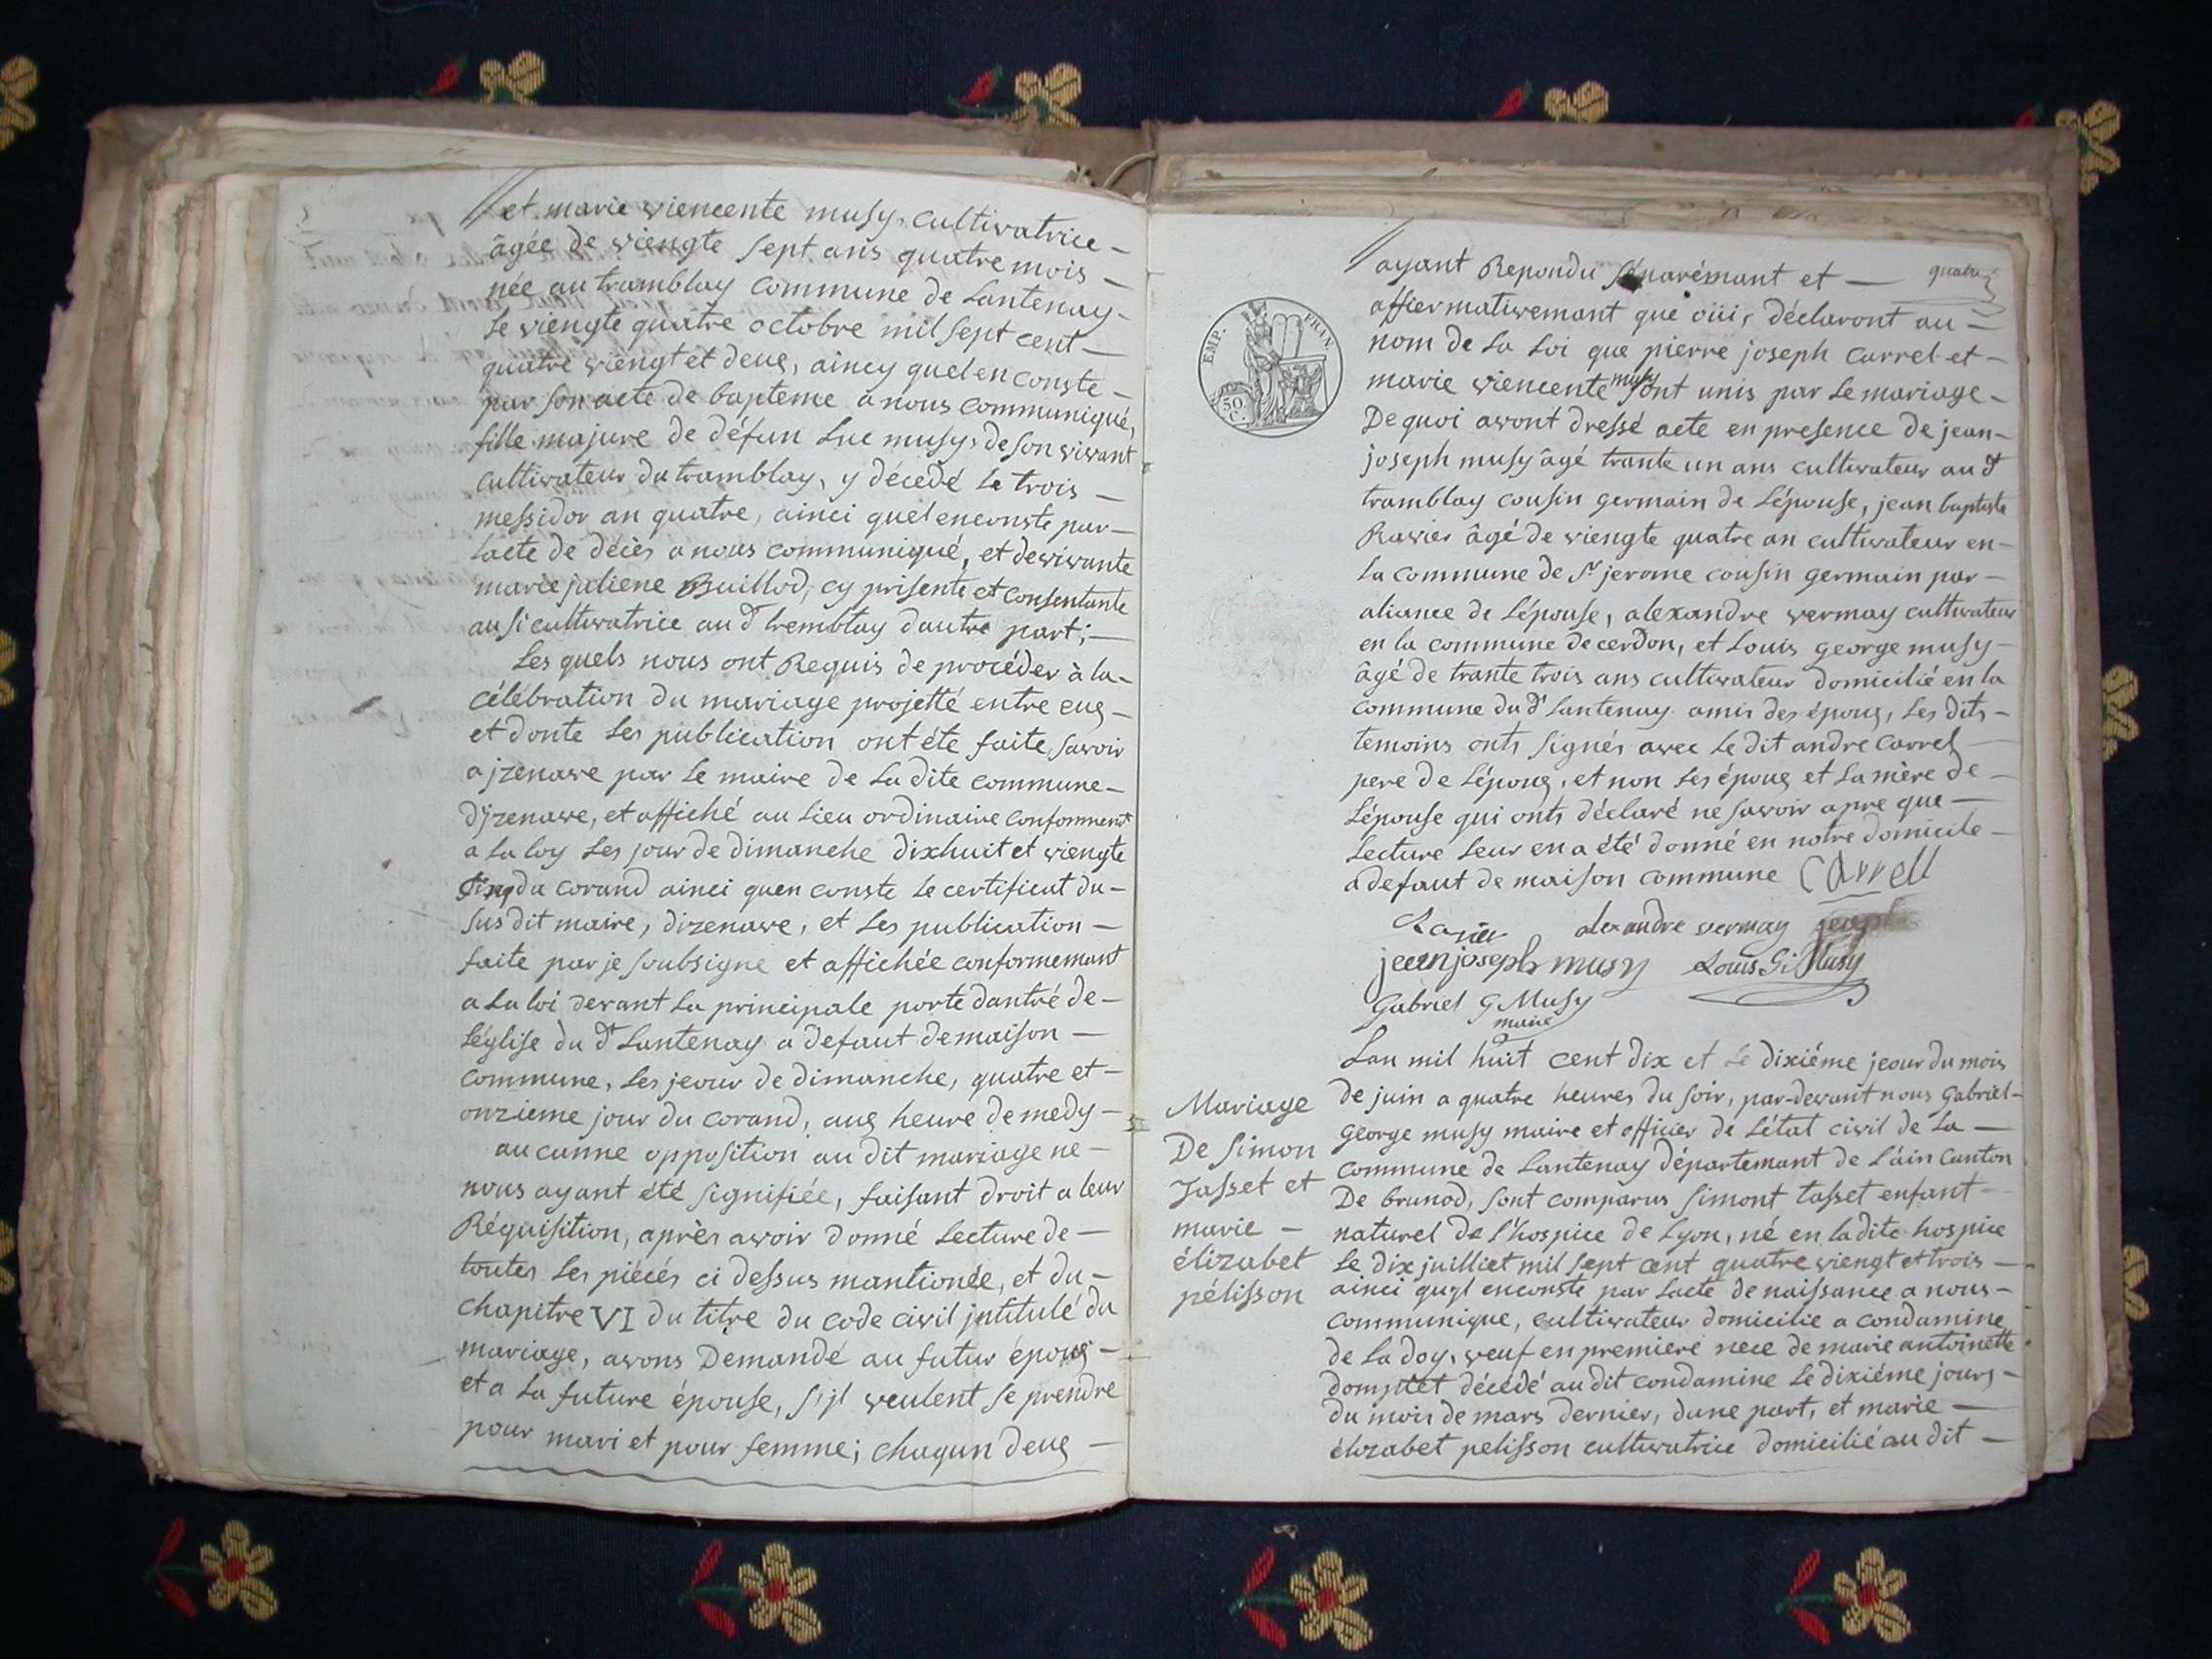 et marie viencente musy, cultivatrice –
âgée de viengte sept ans quatre mois –
née au tramblay commune de Lantenay –
le viengte quatre octobre mil sept cent –
quatre viengt et deug, aincy quel en conste –
par son acte de bapteme a nous communiqué,
fille majure de défun Luc musy, de son vivant
cultivateur du tramblay, y décedé le trois –
messidor an quatre, ainci quel enconste par –
lacte de décès a nous communiqué, et devivante
marie juliene Buillod, cy prisente et consentante
ausi cultivatrice au dt tremblay dautre part; –
Les quels nous ont Requis de procéder à la –
célébration du mariage projetté entre eug –
et donte les publication ont éte faite, savoir
a jzenave par le maire de la dite commune –
Djzenave, et affiché au lieu ordinaire conformment
a la loy les jour de dimanche dixhuit et viengte
cinq du corand ainci quen conste le certificat du –
sus dit maire, dizenave, et les publication –
faite par je soubsigne et affichée conformemant
a la loi devant la principale porte dantré de –
léglise du dt Lantenay a defaut demaison –
commune, les jeour de dimanche, quatre et –
onzieme jour du corand, aug heure de medy –
au cunne opposition au dit mariage ne –
nous ayant été signifiée, faisant droit a leur
Réquisition, après avoir donné lecture de –
toutes les piécés ci dessus mantionée, et du –
chapitre VI du titre du code civil jntitulé du
mariage, avons Demandé au futur époug –
et a la future épouse, s'jl veulent se prendre
pour mari et pour femme; chaqun deug –
quatre
EMP. FRAN.
50 C.
ayant Repondu séparémant et –
affiermativemant que oüi, déclaront au –
nom de la loi que pierre joseph carrel et –
marie viencente musy sont unis par le mariage –
De quoi avont dressé acte en presence de jean –
joseph musy âgé trante un ans cultivateur au dt
tramblay cousin germain de Lépouse, jean baptiste
Ravier âgé de viengte quatre an cultivateur en –
la commune de St jerome cousin germain par –
aliance de Lépouse, alexandre vermay cultivateur
en la commune de cerdon, et Louis george musy –
âgé de trante trois ans cultivateur domicilié en la
commune du dt Lantenay amis des époug, les dits –
temoins onts signés avec le dit andre carrel –
pere de Lépoug, et non les époug et la mère de –
Lépouse qui onts déclaré ne savoir apre que –
lecture leur en a été donné en notre domicile –
a defaut de maison commune Carrell
Ravier alexandre vermay
jean joseph musy Louis G Musy
Gabriel G Musy
maire
Lan mil huit cent dix et le dixiéme jeour du mois
de juin a quatre heures du soir, par-devant nous Gabriel –
George musy maire et officier de Létat civil de la –
commune de Lantenay départemant de Láin canton
De brunod, sont comparus simont tasset enfant
naturel de l'hospice de Lyon, né en ladite hospice
le dix juilliet mil sept cent quatre viengt et trois –
ainci qujl enconste par lacte de naissance a nous –
communique, cultivateur domicilie a condamine
de la doy, veuf en premiere nece de marie antoinette
domptet décédé au dit condamine le dixiéme jours –
du mois de mars dernier, dune part, et marie –
élizabet pelisson cultivatrice domicilié au dit –
Mariage
De Simon
Tasset et
marie –
élizabet
pélisson